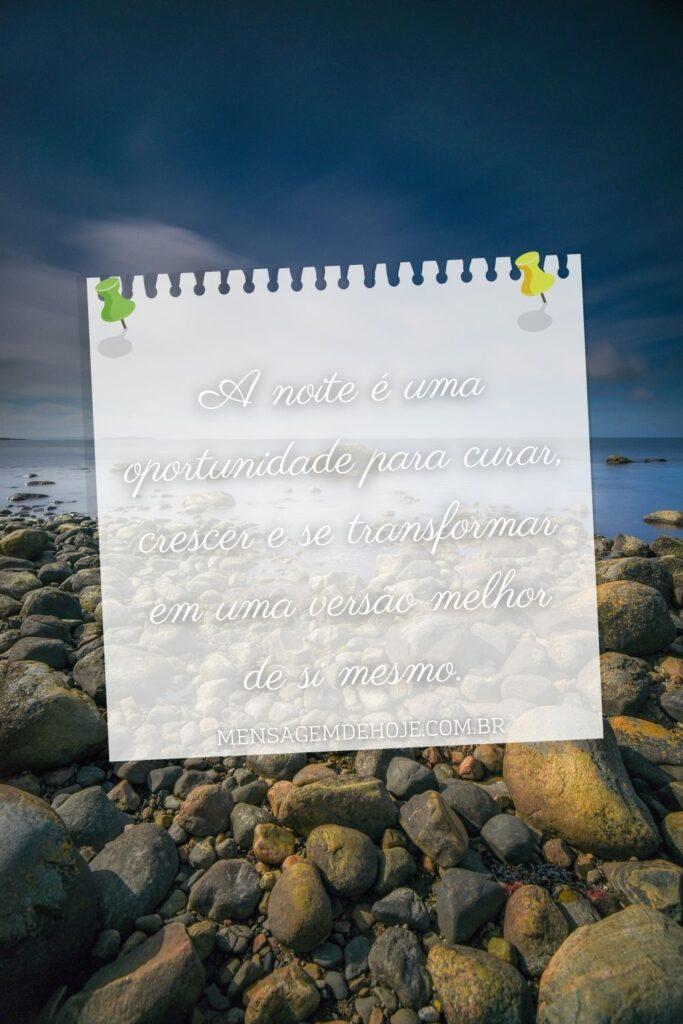 A noite é uma
oportunidade para curar,
crescer e se transformar
em uma versão melhor
de si mesmo.
MENSAGEMDEHOJE.COM.BR